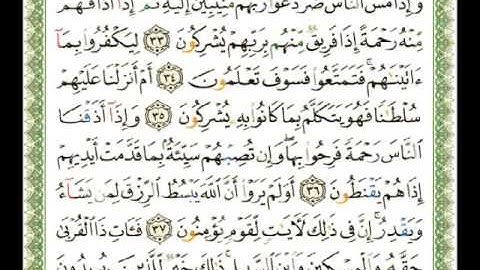 وَإِذَا مَسَّ ٱلنَّاسَ ضُرٌّ دَعَوْا۟ رَبَّهُم مُّنِيبِينَ إِلَيْهِ ثُمَّ إِذَآ أَذَاقَهُم
مِّنْهُ رَحْمَةً إِذَا فَرِيقٌ مِّنْهُم بِرَبِّهِمْ يُشْرِكُونَ ٣٣ لِيَكْفُرُوا۟ بِمَآ
ءَاتَيْنَٰهُمْ ۚ فَتَمَتَّعُوا۟ فَسَوْفَ تَعْلَمُونَ ٣٤ أَمْ أَنزَلْنَا عَلَيْهِمْ
سُلْطَٰنًا فَهُوَ يَتَكَلَّمُ بِمَا كَانُوا۟ بِهِۦ يُشْرِكُونَ ٣٥ وَإِذَآ أَذَقْنَا
ٱلنَّاسَ رَحْمَةً فَرِحُوا۟ بِهَا ۖ وَإِن تُصِبْهُمْ سَيِّئَةٌۢ بِمَا قَدَّمَتْ أَيْدِيهِمْ
إِذَا هُمْ يَقْنَطُونَ ٣٦ أَوَلَمْ يَرَوْا۟ أَنَّ ٱللَّهَ يَبْسُطُ ٱلرِّزْقَ لِمَن يَشَآءُ
وَيَقْدِرُ ۚ إِنَّ فِى ذَٰلِكَ لَءَايَٰتٍ لِّقَوْمٍ يُؤْمِنُونَ ٣٧ فَـَٔاتِ ذَا ٱلْقُرْبَىٰ
حَقَّهُۥ وَٱلْمِسْكِينَ وَٱبْنَ ٱلسَّبِيلِ ۚ ذَٰلِكَ خَيْرٌ لِّلَّذِينَ يُرِيدُونَ